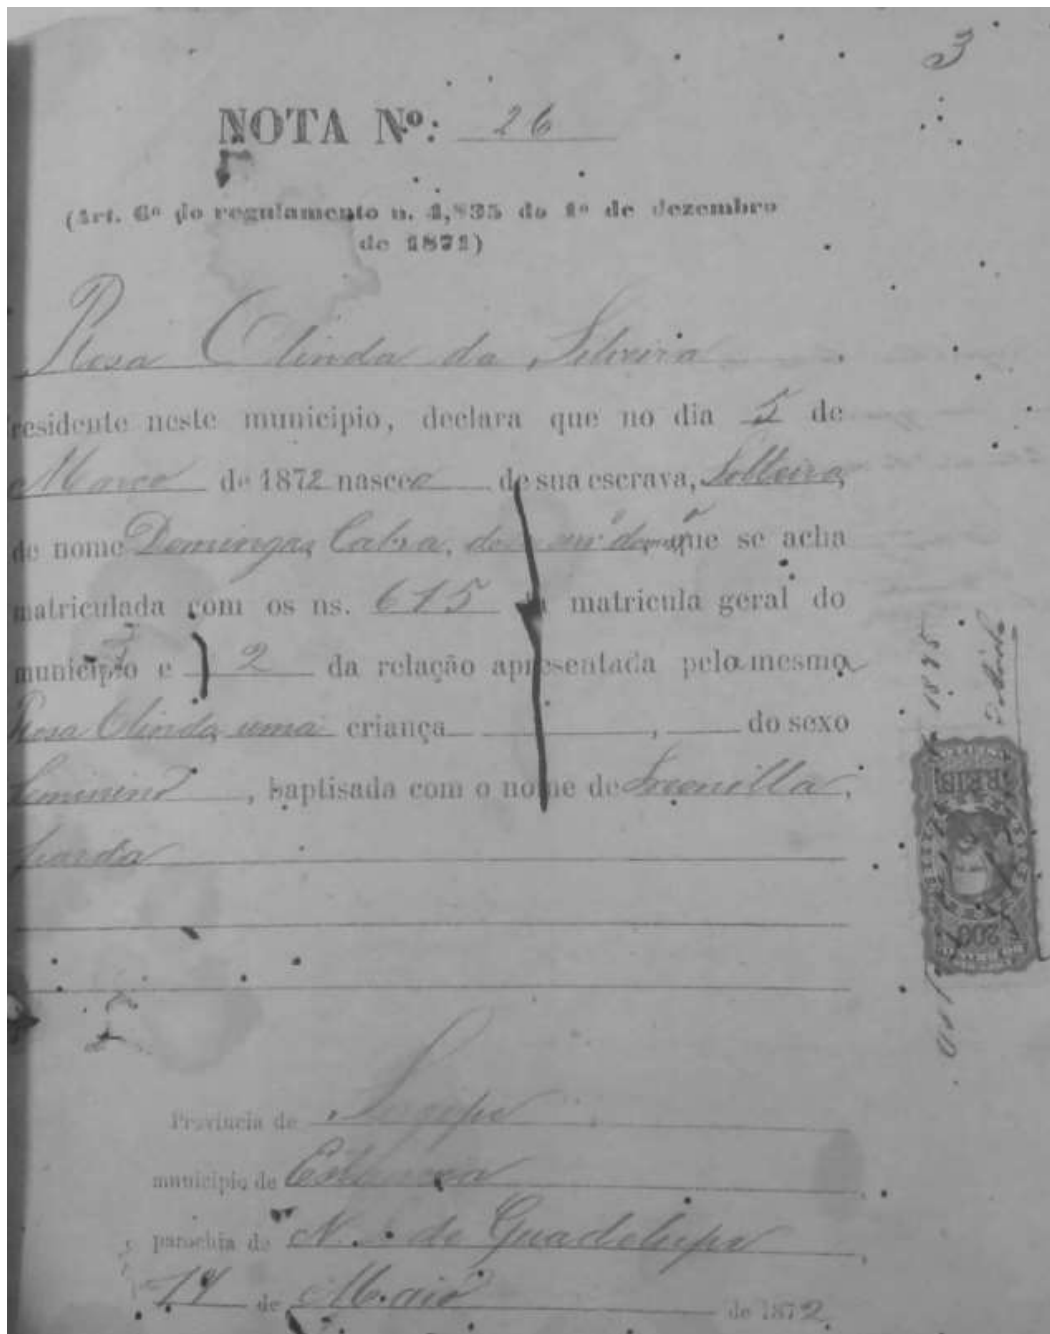 3
NOTA Nº: 26
(Art. 6º do regulamento n. 4,835 do 1º de dezembro
de 1871)
Rosa Olinda da Silveira
residente neste municipio, declara que no dia 5 de
Março de 1872 nasceo de sua escrava, Solteira,
de nome Domingas, Cabra, que se acha
matriculada com os ns. 615 da matricula geral do
municipio e 2 da relação apresentada pela mesma
Rosa Olinda, uma criança , do sexo
feminino , baptisada com o nome de ,
parda
Provincia de Sergipe
municipio de Estancia
parochia de N. S. de Guadelupe
de Maio de 1872
REIS
200